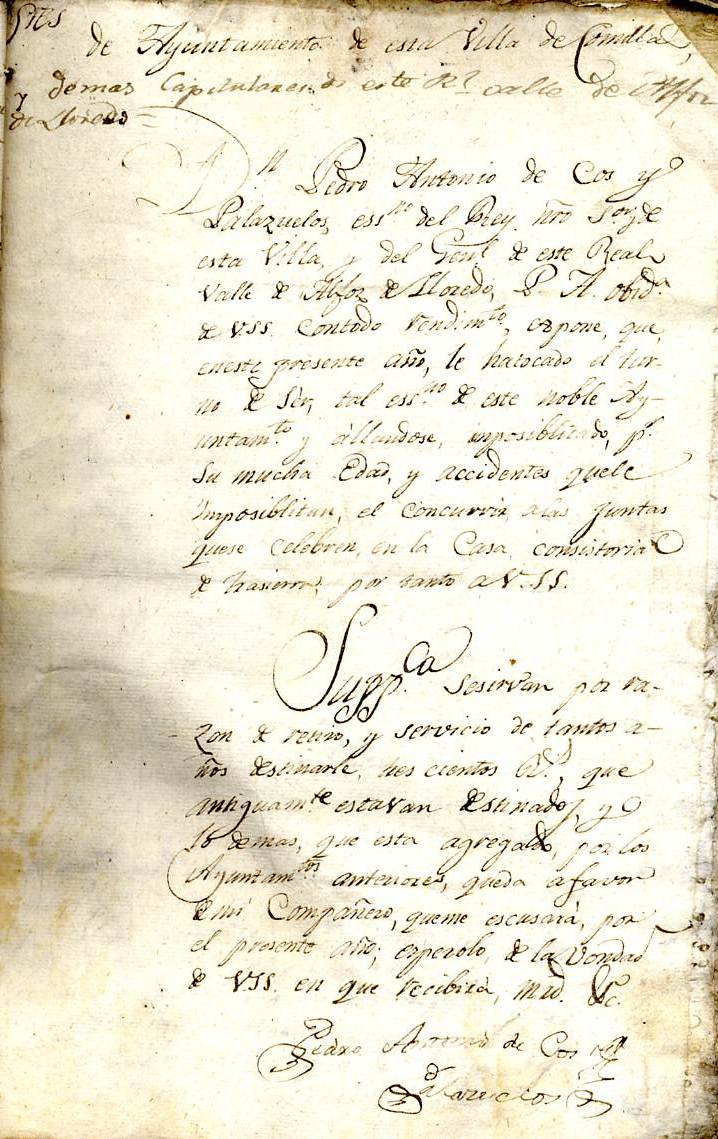 Sres
de Ayuntamiento de esta Villa de Comillas,
y demas Capitulares de este Rl valle de Alfoz
de Lloredo =
Dn Pedro Antonio de Cos y
Palazuelos, essno del Rey nro Sor, de
esta Villa, y del Genl de este Real
Valle de Alfoz de Lloredo, P. A. obida
de VSS. contodo rendimto, expone, que
eneste presente año, le hatocado el tur-
no de Sèr, tal essno de este noble Ay-
untamto y àllandose, imposiblitado, pr
su mucha Edad, y accidentes quele
imposiblitan, el concurrir alas Juntas
quese celebren, en la Casa consistorial
de , por tanto a V. SS.
Suppca sesirvan por ra-
zon de retiro, y servicio de tantos a-
ños destinarle, tres cientos Rs, que
antiguamte estavan destinados, y
lo demas, que esta agregado, por los
Ayuntamtos anteriores, queda afavor
de mi Compañero, queme escusarà, por
el presente año; esperolo, de la vondad
de VSS. en que recibirà, mrd. &c.
Pedro Antonio de Cos y
Palazuelos